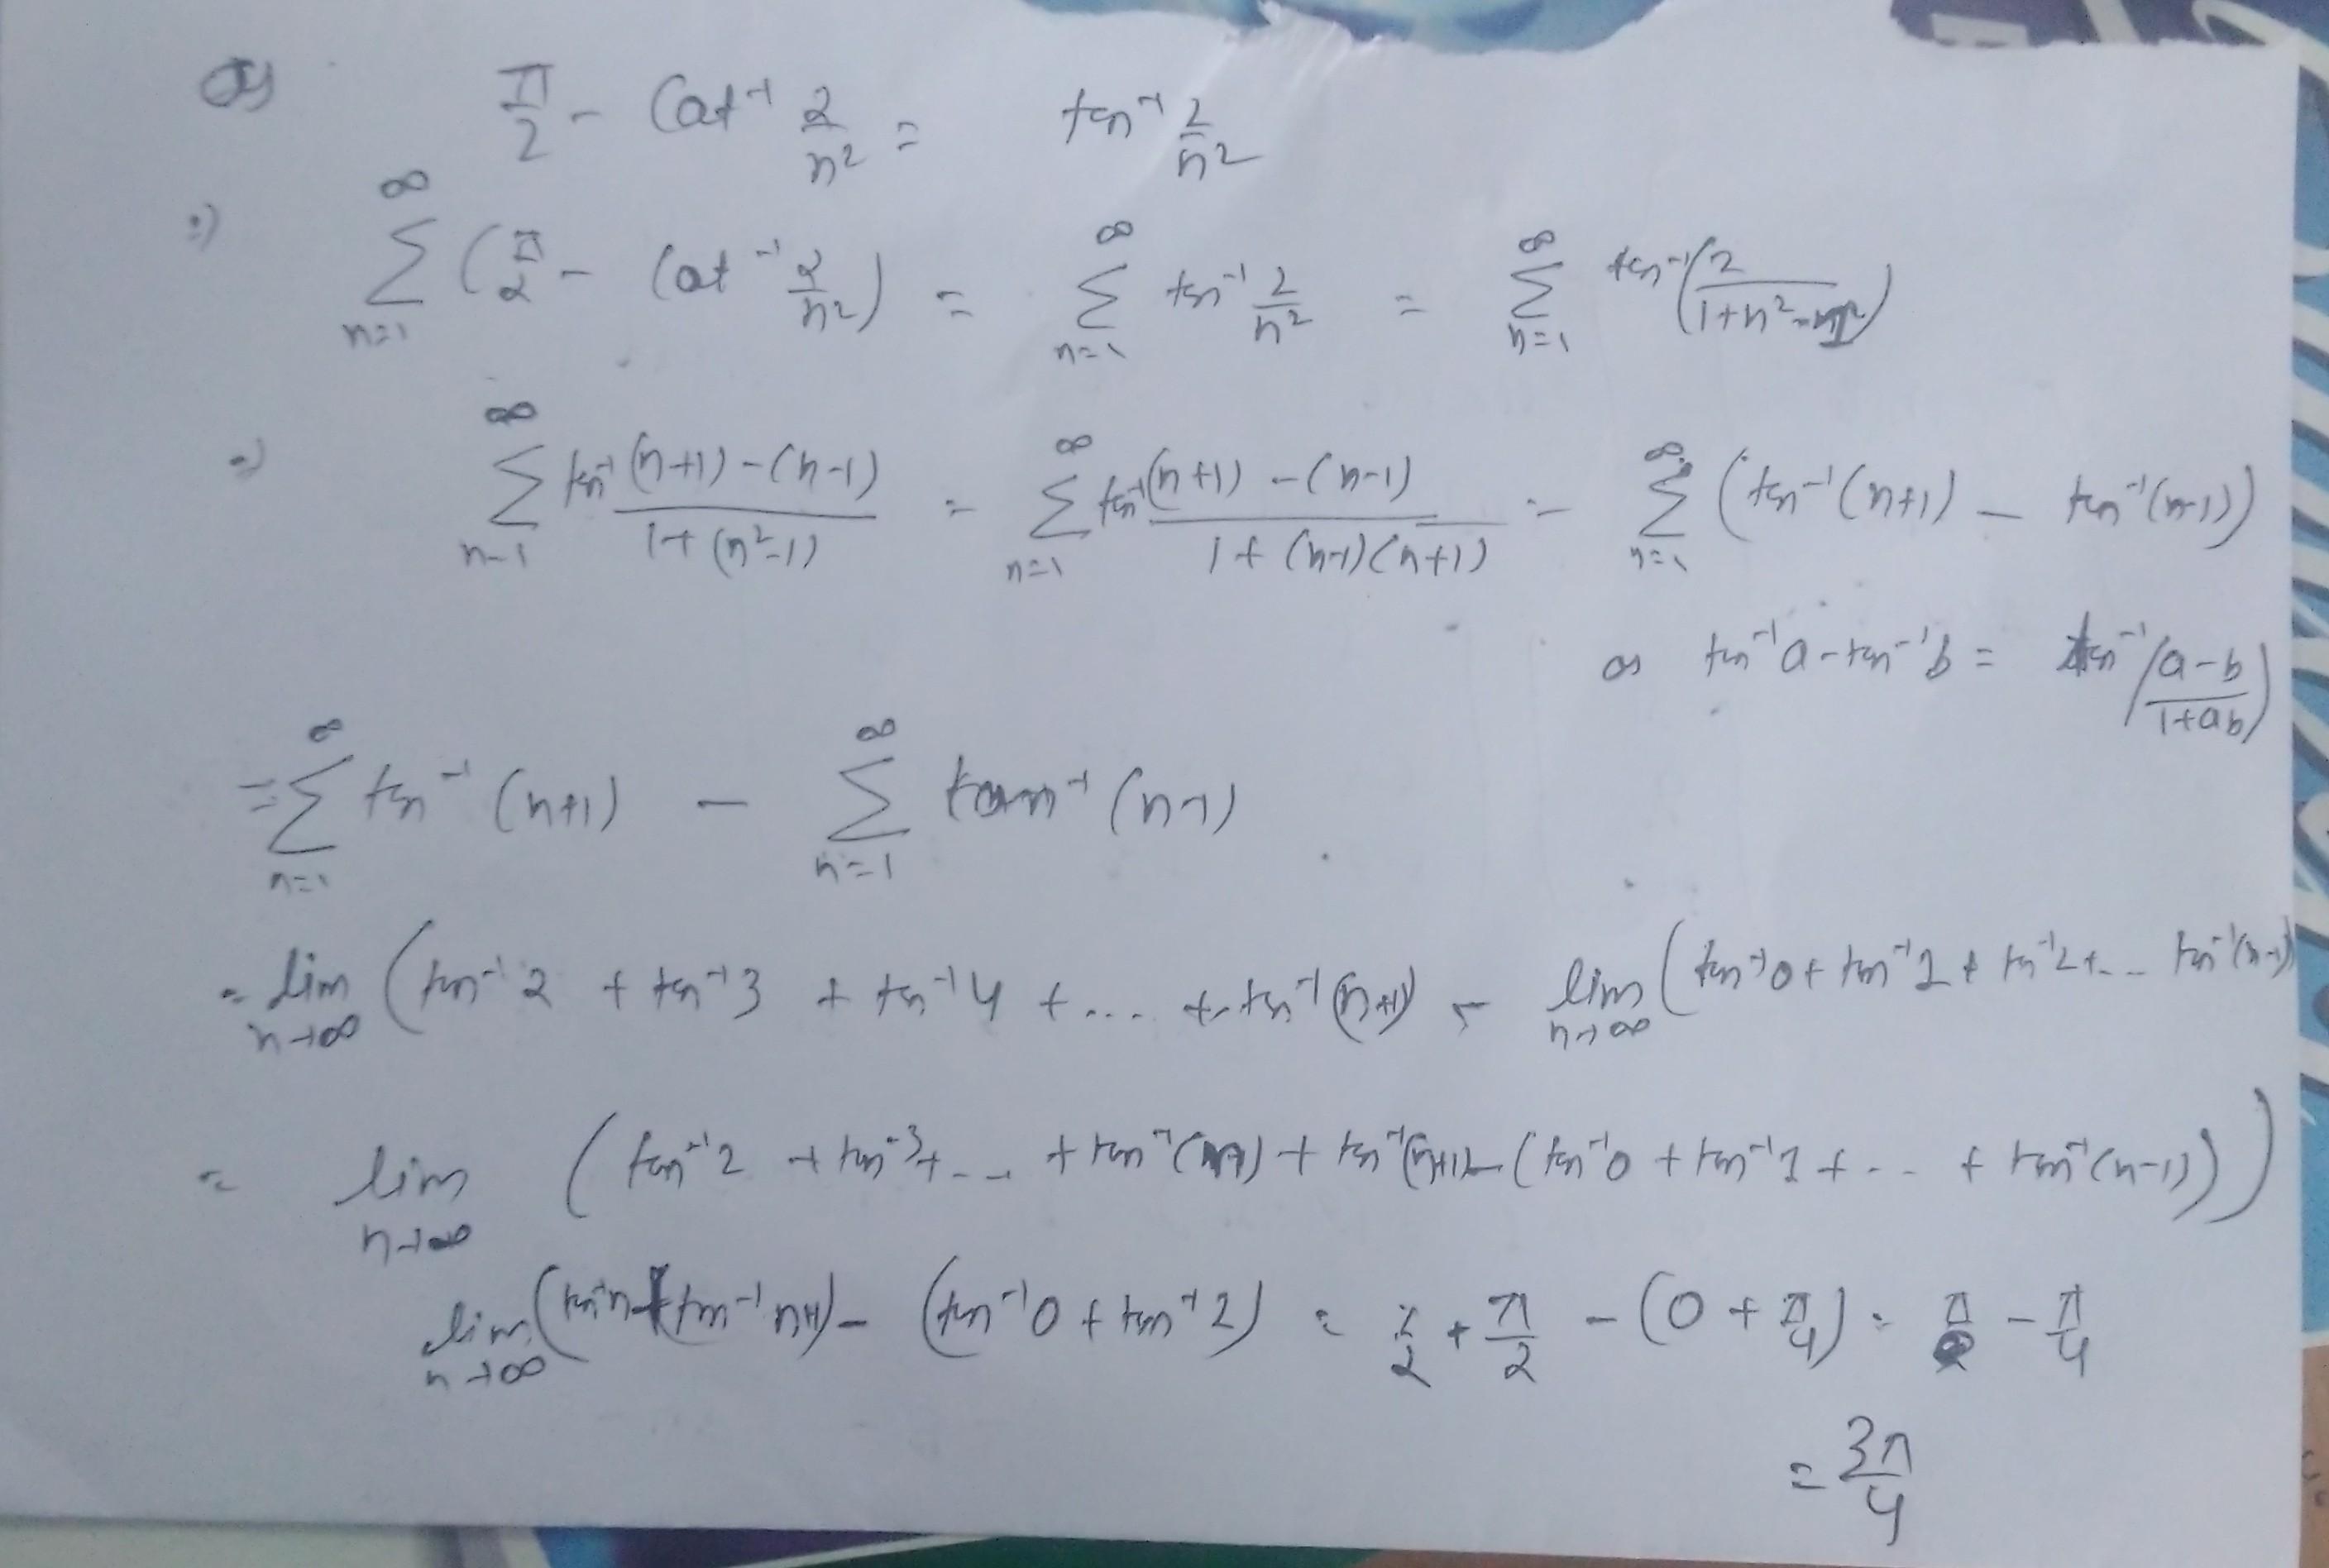 π/2 - Cot⁻¹ 2/n² = tan⁻¹ 2/n²
⇒) ∞Σn=1 (π/2 - Cot⁻¹ 2/n²) = ∞Σn=1 tan⁻¹ 2/n² = ∞Σn=1 tan⁻¹(2/(1+n²-1))
=) ∞Σn=1 tan⁻¹ ((n+1)-(n-1))/(1+(n²-1)) = ∞Σn=1 tan⁻¹ ((n+1)-(n-1))/(1+(n-1)(n+1)) = ∞Σn=1 (tan⁻¹(n+1) - tan⁻¹(n-1))
as tan⁻¹a - tan⁻¹b = tan⁻¹((a-b)/(1+ab))
= ∞Σn=1 tan⁻¹(n+1) - ∞Σn=1 tan⁻¹(n-1)
= lim n→∞ (tan⁻¹2 + tan⁻¹3 + tan⁻¹4 + ... + tan⁻¹(n+1) - lim n→∞ (tan⁻¹0 + tan⁻¹1 + tan⁻¹2 + ... tan⁻¹(n-1)
= lim n→∞ (tan⁻¹2 + tan⁻¹3 + ... + tan⁻¹(n) + tan⁻¹(n+1) - (tan⁻¹0 + tan⁻¹1 + ... + tan⁻¹(n-1)))
lim n→∞ (tan⁻¹n + tan⁻¹n+1) - (tan⁻¹0 + tan⁻¹1) = π/2 + π/2 - (0 + π/4) = π - π/4
= 3π/4